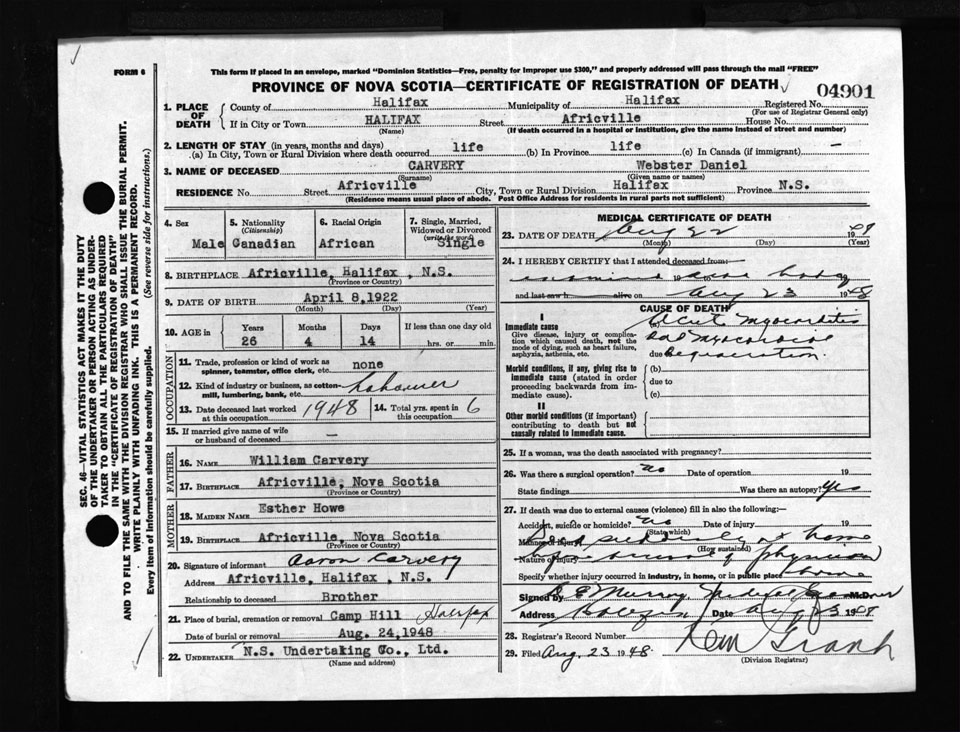 FORM 6
This form if placed in an envelope, marked "Dominion Statistics—Free, penalty for improper use $300," and properly addressed will pass through the mail "FREE"
PROVINCE OF NOVA SCOTIA—CERTIFICATE OF REGISTRATION OF DEATH
04901
1. PLACE OF DEATH
County of Halifax Municipality of Halifax Registered No.
(For use of Registrar General only)
If in City or Town HALIFAX Street Africville House No.
(Name) (If death occurred in a hospital or institution, give the name instead of street and number)
2. LENGTH OF STAY (in years, months and days)
(a) In City, Town or Rural Division where death occurred life (b) In Province life (c) In Canada (if immigrant) —
3. NAME OF DECEASED CARVERY Webster Daniel
(Surname) (Given name or names)
RESIDENCE No. Street Africville City, Town or Rural Division Halifax Province N.S.
(Residence means usual place of abode. Post Office Address for residents in rural parts not sufficient)
4. Sex
Male
5. Nationality (Citizenship)
Canadian
6. Racial Origin
African
7. Single, Married, Widowed or Divorced (write the word)
Single
8. BIRTHPLACE Africville, Halifax, N.S.
(Province or Country)
9. DATE OF BIRTH April 8, 1922
(Month) (Day) (Year)
10. AGE in Years Months Days If less than one day old
26 4 14 hrs. or min.
OCCUPATION
11. Trade, profession or kind of work as spinner, teamster, office clerk, etc. none
12. Kind of industry or business, as cotton-mill, lumbering, bank, etc.
13. Date deceased last worked at this occupation 1948
14. Total yrs. spent in this occupation 6
15. If married give name of wife or husband of deceased —
FATHER
16. NAME William Carvery
17. BIRTHPLACE Africville, Nova Scotia
(Province or Country)
MOTHER
18. MAIDEN NAME Esther Howe
19. BIRTHPLACE Africville, Nova Scotia
(Province or Country)
20. Signature of informant Aaron Carvery
Address Africville, Halifax, N.S.
Relationship to deceased Brother
21. Place of burial, cremation or removal Camp Hill Halifax
Date of burial or removal Aug. 24, 1948
22. UNDERTAKER N.S. Undertaking Co., Ltd.
(Name and address)
MEDICAL CERTIFICATE OF DEATH
23. DATE OF DEATH Aug 22 19
(Month) (Day) (Year)
24. I HEREBY CERTIFY that I attended deceased from:
19 body
and last saw h alive on Aug 23 1948
CAUSE OF DEATH
I
Immediate cause
Give disease, injury or complication which caused death, not the mode of dying, such as heart failure, asphyxia, asthenia, etc.
(a) Acute Myocarditis
and Myocardial
due degeneration.
Morbid conditions, if any, giving rise to immediate cause (stated in order proceeding backwards from immediate cause).
(b)
due to
(c)
II
Other morbid conditions (if important) contributing to death but not causally related to immediate cause.
25. If a woman, was the death associated with pregnancy?
26. Was there a surgical operation? no Date of operation 19
State findings Was there an autopsy? Yes
27. If death was due to external causes (violence) fill in also the following:—
Accident, suicide or homicide? No Date of injury 19
(State which)
Manner of injury suddenly at home
(How sustained)
Nature of injury before arrival of physician
Specify whether injury occurred in industry, in home, or in public place home
Signed by Murray
Address Halifax Date Aug 23 19
28. Registrar's Record Number
29. Filed Aug. 23 1948
(Division Registrar)
SEC. 46—VITAL STATISTICS ACT MAKES IT THE DUTY
OF THE UNDERTAKER OR PERSON ACTING AS UNDER-
TAKER TO OBTAIN ALL THE PARTICULARS REQUIRED
IN THE "CERTIFICATE OF REGISTRATION OF DEATH"
AND TO FILE THE SAME WITH THE DIVISION REGISTRAR WHO SHALL ISSUE THE BURIAL PERMIT.
WRITE PLAINLY WITH UNFADING INK. THIS IS A PERMANENT RECORD.
Every item of Information should be carefully supplied. (See reverse side for instructions.)